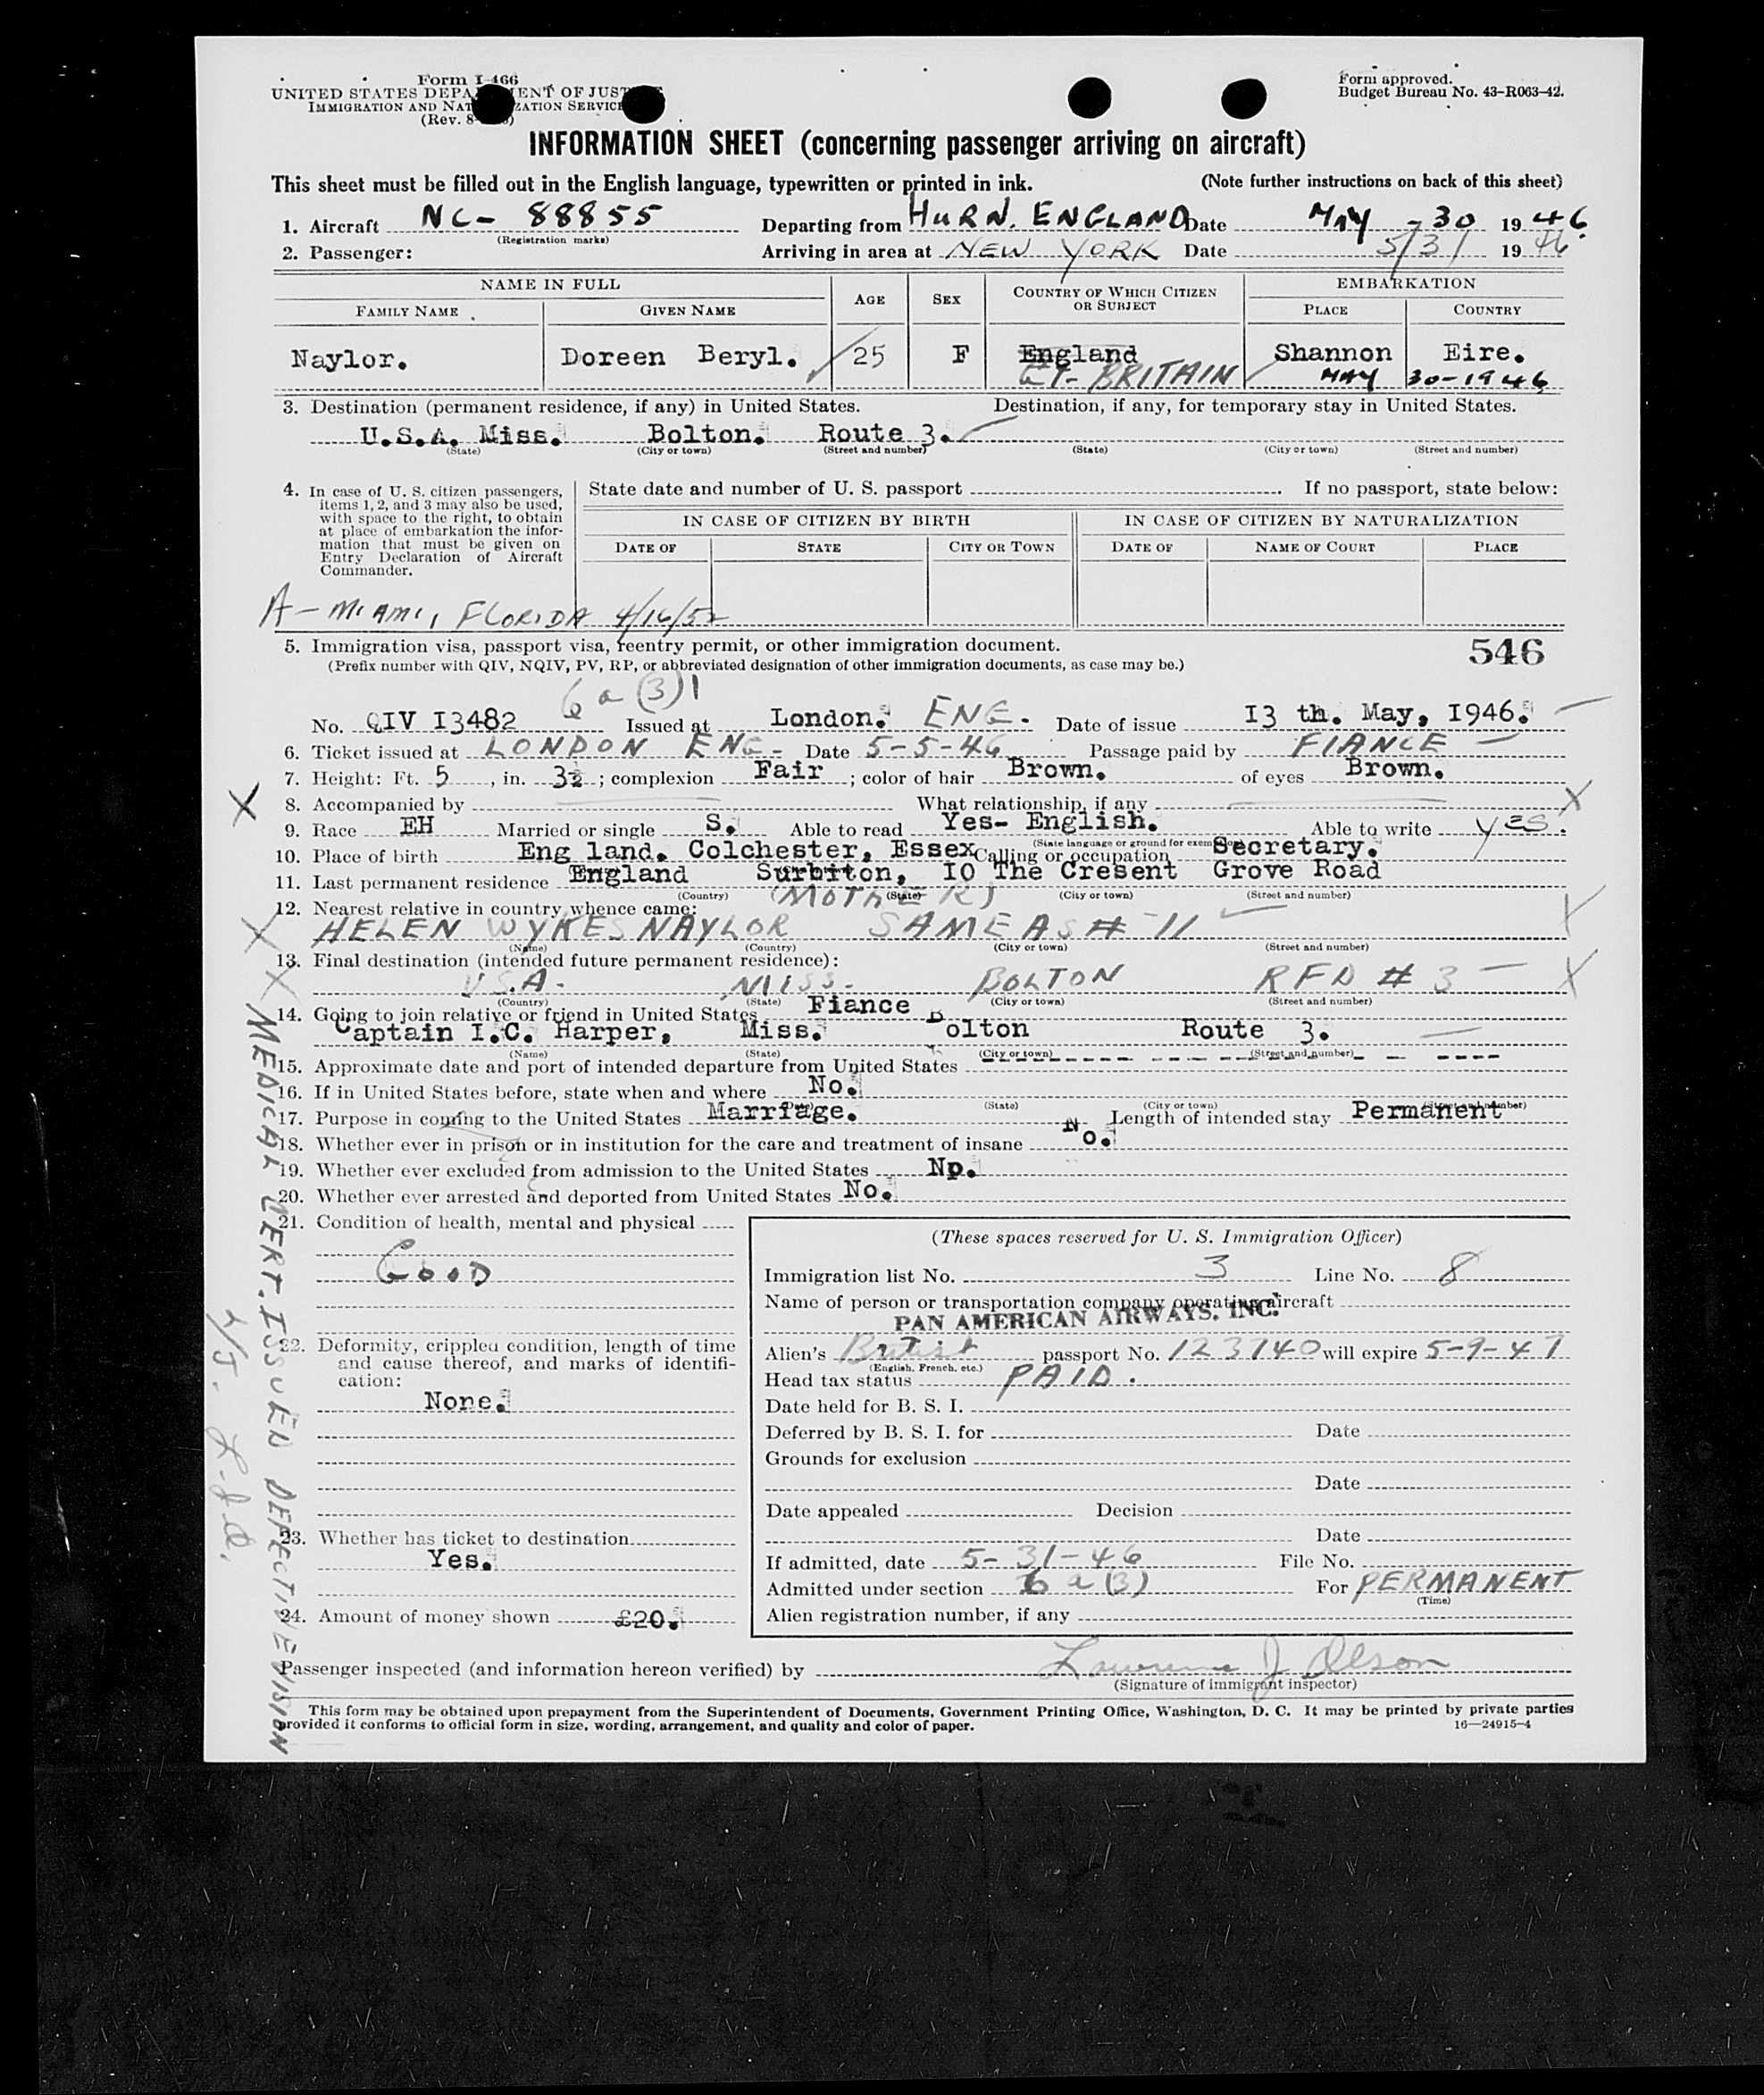 Form I-466
UNITED STATES DEPARTMENT OF JUSTICE
IMMIGRATION AND NATURALIZATION SERVICE
(Rev. 8-
Form approved.
Budget Bureau No. 43-R063-42.
INFORMATION SHEET (concerning passenger arriving on aircraft)
This sheet must be filled out in the English language, typewritten or printed in ink. (Note further instructions on back of this sheet)
1. Aircraft NC- 88855 Departing from HURN. ENGLAND Date MAY -30 1946.
(Registration marks)
2. Passenger: Arriving in area at NEW YORK Date 5/31 1946
NAME IN FULL AGE SEX COUNTRY OF WHICH CITIZEN OR SUBJECT EMBARKATION
FAMILY NAME GIVEN NAME PLACE COUNTRY
Naylor. Doreen Beryl. 25 F England Shannon Eire.
GT- BRITAIN MAY 30-1946
3. Destination (permanent residence, if any) in United States. Destination, if any, for temporary stay in United States.
U.S.A. Miss. Bolton. Route 3.
(State) (City or town) (Street and number) (State) (City or town) (Street and number)
4. In case of U. S. citizen passengers, items 1, 2, and 3 may also be used, with space to the right, to obtain at place of embarkation the information that must be given on Entry Declaration of Aircraft Commander.
State date and number of U. S. passport . If no passport, state below:
IN CASE OF CITIZEN BY BIRTH IN CASE OF CITIZEN BY NATURALIZATION
DATE OF STATE CITY OR TOWN DATE OF NAME OF COURT PLACE
A - MIAMI, FLORIDA 4/16/52
5. Immigration visa, passport visa, reentry permit, or other immigration document. 546
(Prefix number with QIV, NQIV, PV, RP, or abbreviated designation of other immigration documents, as case may be.)
6 a (3) 1
No. QIV I3482 Issued at London. ENG. Date of issue I3 th. May, I946.
6. Ticket issued at LONDON ENG- Date 5-5-46 Passage paid by FIANCE
7. Height: Ft. 5, in. 3½; complexion Fair; color of hair Brown. of eyes Brown.
X 8. Accompanied by What relationship, if any X
9. Race EH Married or single S. Able to read Yes- English. Able to write YES.
10. Place of birth Eng land. Colchester, Essex Calling or occupation Secretary.
11. Last permanent residence England Surbiton, IO The Cresent Grove Road
(Country) (State) (City or town) (Street and number)
(MOTHER)
12. Nearest relative in country whence came:
X HELEN WYKES NAYLOR SAME AS # 11 X
(Name) (Country) (City or town) (Street and number)
13. Final destination (intended future permanent residence):
X U.S.A. MISS. BOLTON RFD # 3 X
(Country) (State) (City or town) (Street and number)
14. Going to join relative or friend in United States Fiance
Captain I.C. Harper, Miss. Bolton Route 3.
(Name) (State) (City or town) (Street and number)
15. Approximate date and port of intended departure from United States
16. If in United States before, state when and where No.
(State) (City or town) (Street and number)
17. Purpose in coming to the United States Marriage. Length of intended stay Permanent
18. Whether ever in prison or in institution for the care and treatment of insane No.
19. Whether ever excluded from admission to the United States Np.
20. Whether ever arrested and deported from United States No.
21. Condition of health, mental and physical
GOOD
22. Deformity, crippled condition, length of time and cause thereof, and marks of identification:
None.
23. Whether has ticket to destination
Yes.
24. Amount of money shown £20.
(These spaces reserved for U. S. Immigration Officer)
Immigration list No. 3 Line No. 8
Name of person or transportation company operating aircraft
PAN AMERICAN AIRWAYS. INC.
Alien's British passport No. 123740 will expire 5-9-47
(English, French, etc.)
Head tax status PAID.
Date held for B. S. I.
Deferred by B. S. I. for Date
Grounds for exclusion
Date
Date appealed Decision
Date
If admitted, date 5-31-46 File No.
Admitted under section 6 a (3) For PERMANENT
(Time)
Alien registration number, if any
MEDICAL CERT. ISSUED DEFECTIVE VISION
Passenger inspected (and information hereon verified) by Lawrence J Olson
(Signature of immigrant inspector)
This form may be obtained upon prepayment from the Superintendent of Documents, Government Printing Office, Washington, D. C. It may be printed by private parties
provided it conforms to official form in size, wording, arrangement, and quality and color of paper. 16—24915-4